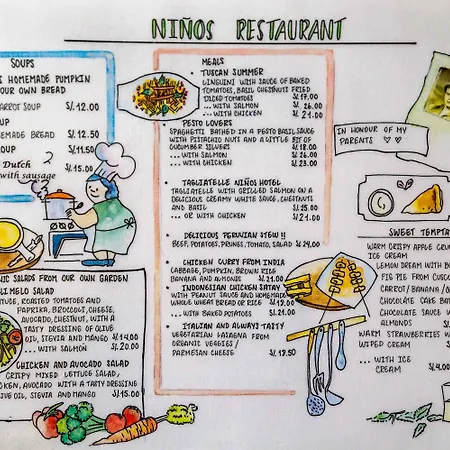 NIÑOS RESTAURANT
SOUPS
S HOMEMADE PUMPKIN
OUR OWN BREAD
CARROT SOUP S/.12.00
UP
HOMEMADE BREAD S/.12.50
UP S/.11.50
Dutch
with sausage S/.15.00
NIC SALADS FROM OUR OWN GARDEN
LIMELO SALAD
TUCE, ROASTED TOMATOES AND
PAPRIKA, BROCCOLI, CHEESE,
AVOCADO, CHESTNUT, WITH A
TASTY DRESSING OF OLIVE
OIL, STEVIA AND MANGO S/14.00
... WITH SALMON S/.20.00
CHICKEN AND AVOCADO SALAD
CRISPY MIXED LETTUCE SALAD,
CKEN, AVOCADO WITH A TASTY DRESSING
LIVE OIL, STEVIA AND MANGO S/.15.00
MEALS
TUSCAN SUMMER
LINGUINI WITH SAUCE OF BAKED
TOMATOES, BASIL, CHESTNUTS FRIED
DICED TOMATOES S/.17.00
... WITH SALMON S/.26.00
... WITH CHICKEN S/ 21.00
PESTO LOVERS
SPAGHETTI BATHED IN A PESTO BASIL SAUCE
WITH PISTACHIO NUTS AND A LITTLE BIT OF
CUCUMBER SLIVERS S/18.00
... WITH SALMON S/.26.00
... WITH CHICKEN S/.23.00
TAGLIATELLE NIÑOS HOTEL
TAGLIATELLE WITH GRILLED SALMON ON A
DELICIOUS CREAMY WHITE SAUCE, CHESTNUTS
AND BASIL S/.25.00
... OR WITH CHICKEN S/.21.00
DELICIOUS PERUVIAN STEW !!
BEEF, POTATOES, PRUNES, TOMATO, SALAD S/.24.00
CHICKEN CURRY FROM INDIA
CABBAGE, PUMPKIN, BROWN RICE
BANANA AND ALMONDS S/.21.00
INDONESIAN CHICKEN SATAY
WITH PEANUT SAUCE AND HOMEMADE
WHOLE WHEAT BREAD OR RICE
... WITH BAKED POTATOES S/.21.00
ITALIAN AND ALWAYS TASTY
VEGETARIAN LASAGNA FROM
ORGANIC VEGGIES /
PARMESAN CHEESE S/.17.50
IN HONOUR OF MY
PARENTS ♡ ♡
SWEET TEMPTA
WARM CRISPY APPLE CRU
ICE CREAM
LEMON DREAM WITH BO
FIG PIE FROM CUSCO
CARROT/BANANA/O
CHOCOLATE CAKE BAT
CHOCOLATE SAUCE W
ALMONDS S/.
WARM STRAWBERRIES W
WIPED CREAM
... WITH ICE
CREAM S/4.00